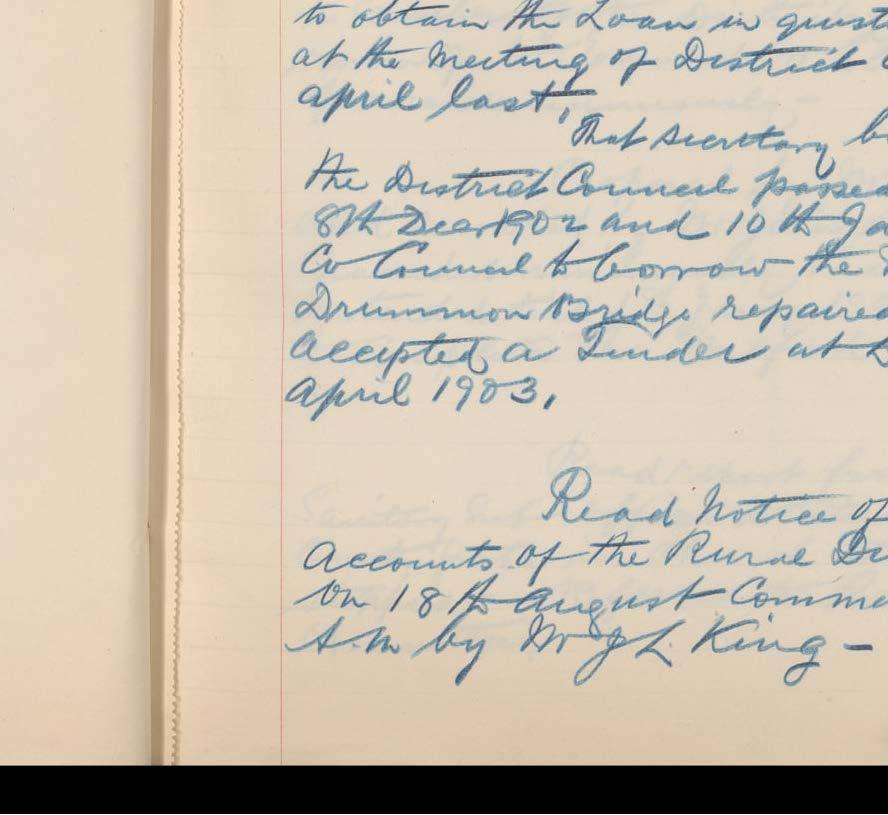 to obtain the Loan in quest
at the Meeting of District
April last,
That Secretary b
the District Council passed
8th Decr 1902 and 10th Ja
Co Council to borrow the
Drummon Bridge repaired
accepted a Tender at
April 1903.
Read Notice of
Accounts of the Rural D
on 18th August Comme
A.M by Mr J L King -